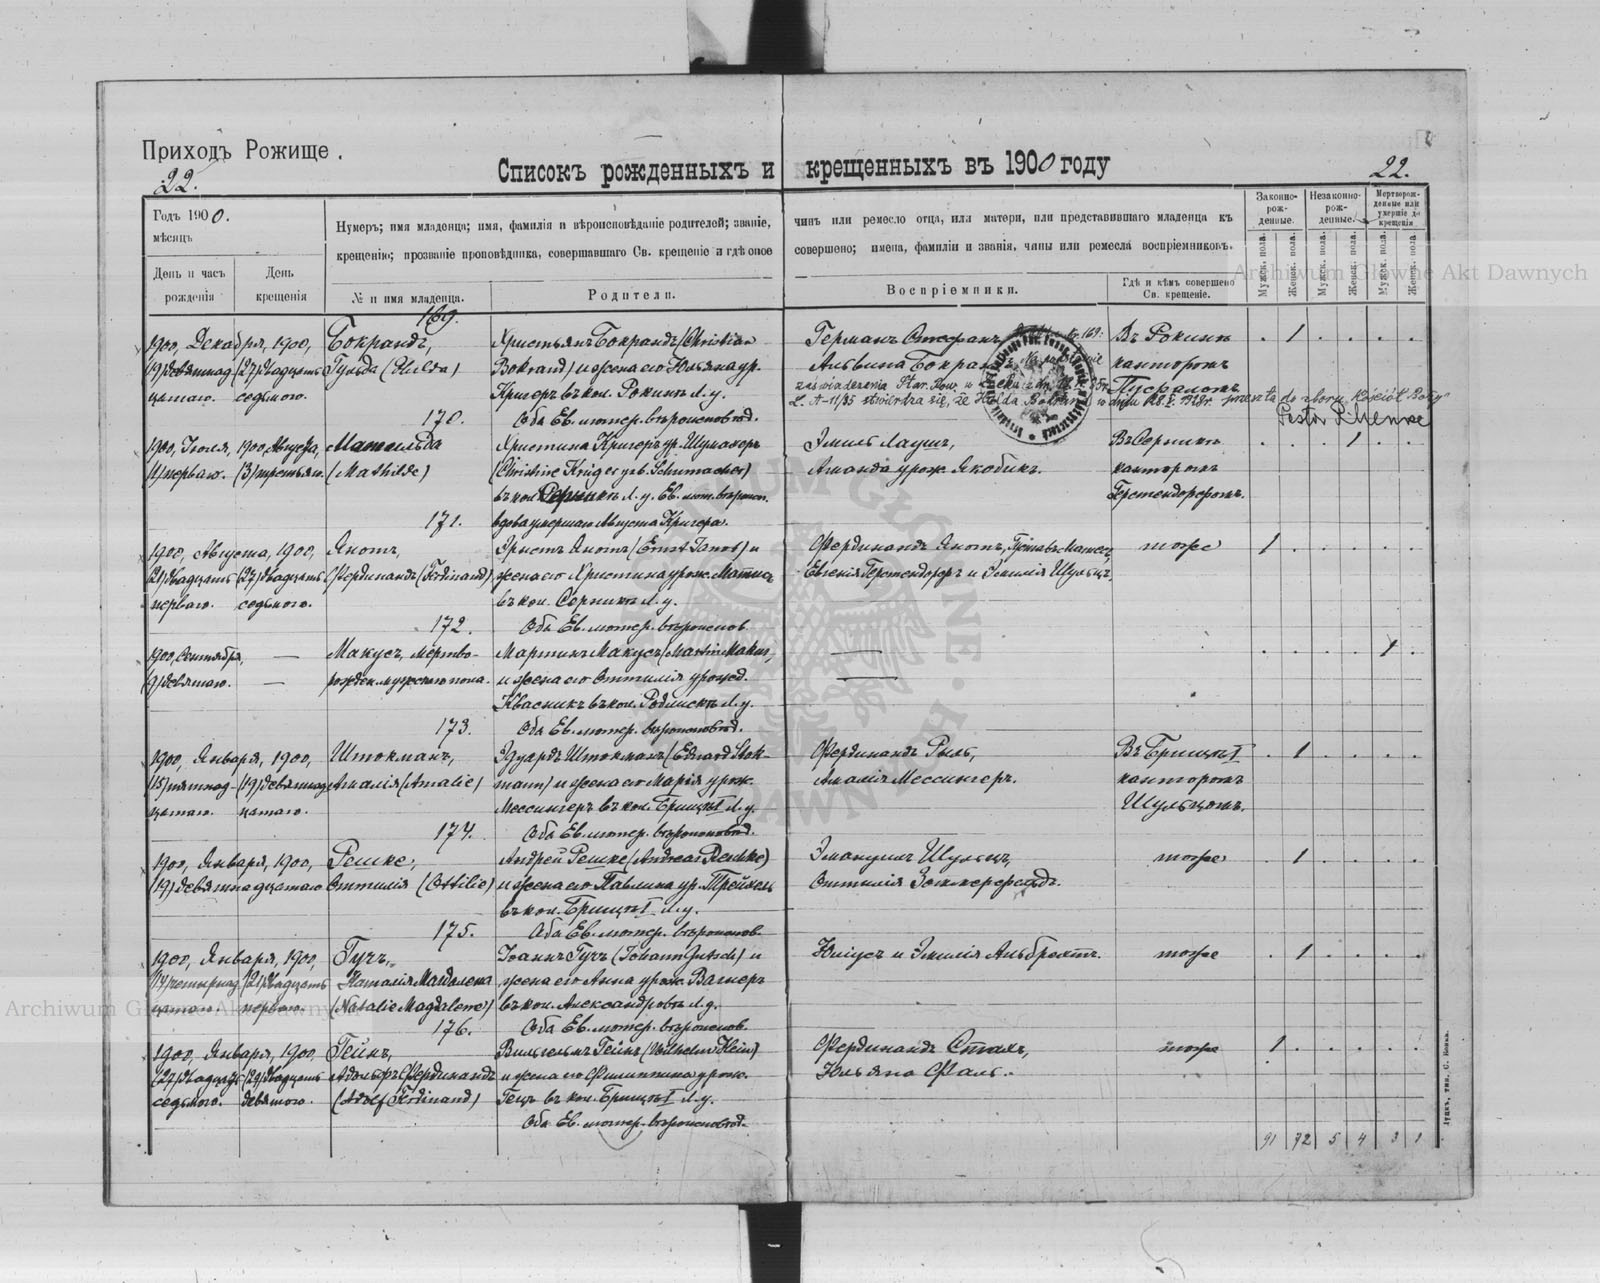 Приходъ Рожище.
22.
Списокъ рожденныхъ и крещенныхъ въ 1900 году
22.
Годъ 1900.
мѣсяцъ
День и часъ рожденія
День крещенія
Нумеръ; имя младенца; имя, фамилія и вѣроисповѣданіе родителей; званіе, чинъ или ремесло отца, или матери, или представившаго младенца къ
крещенію; прозваніе проповѣдника, совершавшаго Св. крещеніе и гдѣ оное совершено; имена, фамиліи и званія, чины или ремесла воспріемниковъ.
№ и имя младенца.
Родители.
Воспріемники.
Гдѣ и кѣмъ совершено Св. крещеніе.
Законно-рож-денные.
Незаконно-рож-денные.
Мертворож-денные или умершіе до крещенія
Мужск. пола.
Женск. пола.
Мужск. пола.
Женск. пола.
Мужск. пола.
Женск. пола
Archiwum Główne Akt Dawnych
169.
1900, Декабря, 1900, Бокрандъ, Христьянъ Бокрандъ (Christian Германъ Стефанъ, Въ Рокини 1
(19) девятнад- (27) двадцать Гульда (Hulda) Bokrand) и жена его Юльяна ур. Альвина Бокрандъ канторомъ
цатаго. седьмого. Кригеръ въ кол. Рокини Л. у.
170. Оба Ев. лютер. вѣроисповѣд.
zaświadczenia Star. Pow. w Łucku
L. A-11/35 stwierdza się, że Hulda Bokrand
Pastor
1900, Іюля, 1900, Августа, Матильда Христина Кригеръ ур. Шумахеръ Эмиль Лаушъ, 1
(1) перваго. (3) третьяго. (Mathilde) (Christine Krüger geb. Schumacher) Аманда урож. Якобикъ. канторомъ
въ кол. Л. у. Ев. лют. вѣроисп. Герстендорфомъ.
171. вдова умершаго Августа Кригера.
1900, Августа, 1900, Янотъ, Эрнстъ Янотъ (Ernst Janot) и Фердинандъ Янотъ, тоже 1
(21) двадцать (27) двадцать Фердинандъ (Ferdinand) жена его Христина урож. Евгенія Герстендорфъ и Эмилія Шульцъ.
перваго. седьмого. въ кол. Л. у.
172. Оба Ев. лютер. вѣроисповѣд.
1900, Сентября, — Макусъ, мертво- Мартинъ Макусъ (Martin Makus), — 1
(9) девятаго. — рожден. мужского пола. и жена его Оттилія урожд. —
Квасникъ въ кол. Л. у.
173. Оба Ев. лютер. вѣроисповѣд.
1900, Января, 1900, Штокманъ, Эдуардъ Штокманъ (Eduard Stok- Фердинандъ Рыль, Въ Брищи I 1
(15) пятнад- (19) девятнад- Амалія (Amalie) mann) и жена его Марія урож. Амалія Мессингеръ. канторомъ
цатаго. цатаго. Мессингеръ въ кол. Брищи I Л. у. Шульцомъ.
174. Оба Ев. лютер. вѣроисповѣд.
1900, Января, 1900, Решке, Андрей Решке (Andreas Reschke) Эмануилъ Шульцъ, тоже 1
(19) девятнадцатаго Оттилія (Ottilie) и жена его Павлина ур. Трейхель Оттилія
въ кол. Брищи I Л. у.
175. Оба Ев. лютер. вѣроисповѣд.
1900, Января, 1900, Гучъ, Іоаннъ Гучъ (Johann Gutsch) и Юліусъ и Эмилія Альбрехтъ. тоже 1
(14) четырнад- (21) двадцать Наталія Магдалена жена его Анна урож. Вагнеръ
цатаго. перваго. (Natalie Magdalene) въ кол. Александровъ Л. у.
176. Оба Ев. лютер. вѣроисповѣд.
1900, Января, 1900, Гейнъ, Вильгельмъ Гейнъ (Wilhelm Hein) Фердинандъ Сталь, тоже 1
(27) двадцать (29) двадцать Адольфъ Фердинандъ и жена его Филиппина урож. Юльяна Фаль.
седьмого. девятого. (Adolf Ferdinand) Гецъ въ кол. Брищи I Л. у.
Оба Ев. лютер. вѣроисповѣд.
91 72 5 4 3 1
Луцкъ, тип. С. Бонка.
Archiwum Główne Akt Dawnych